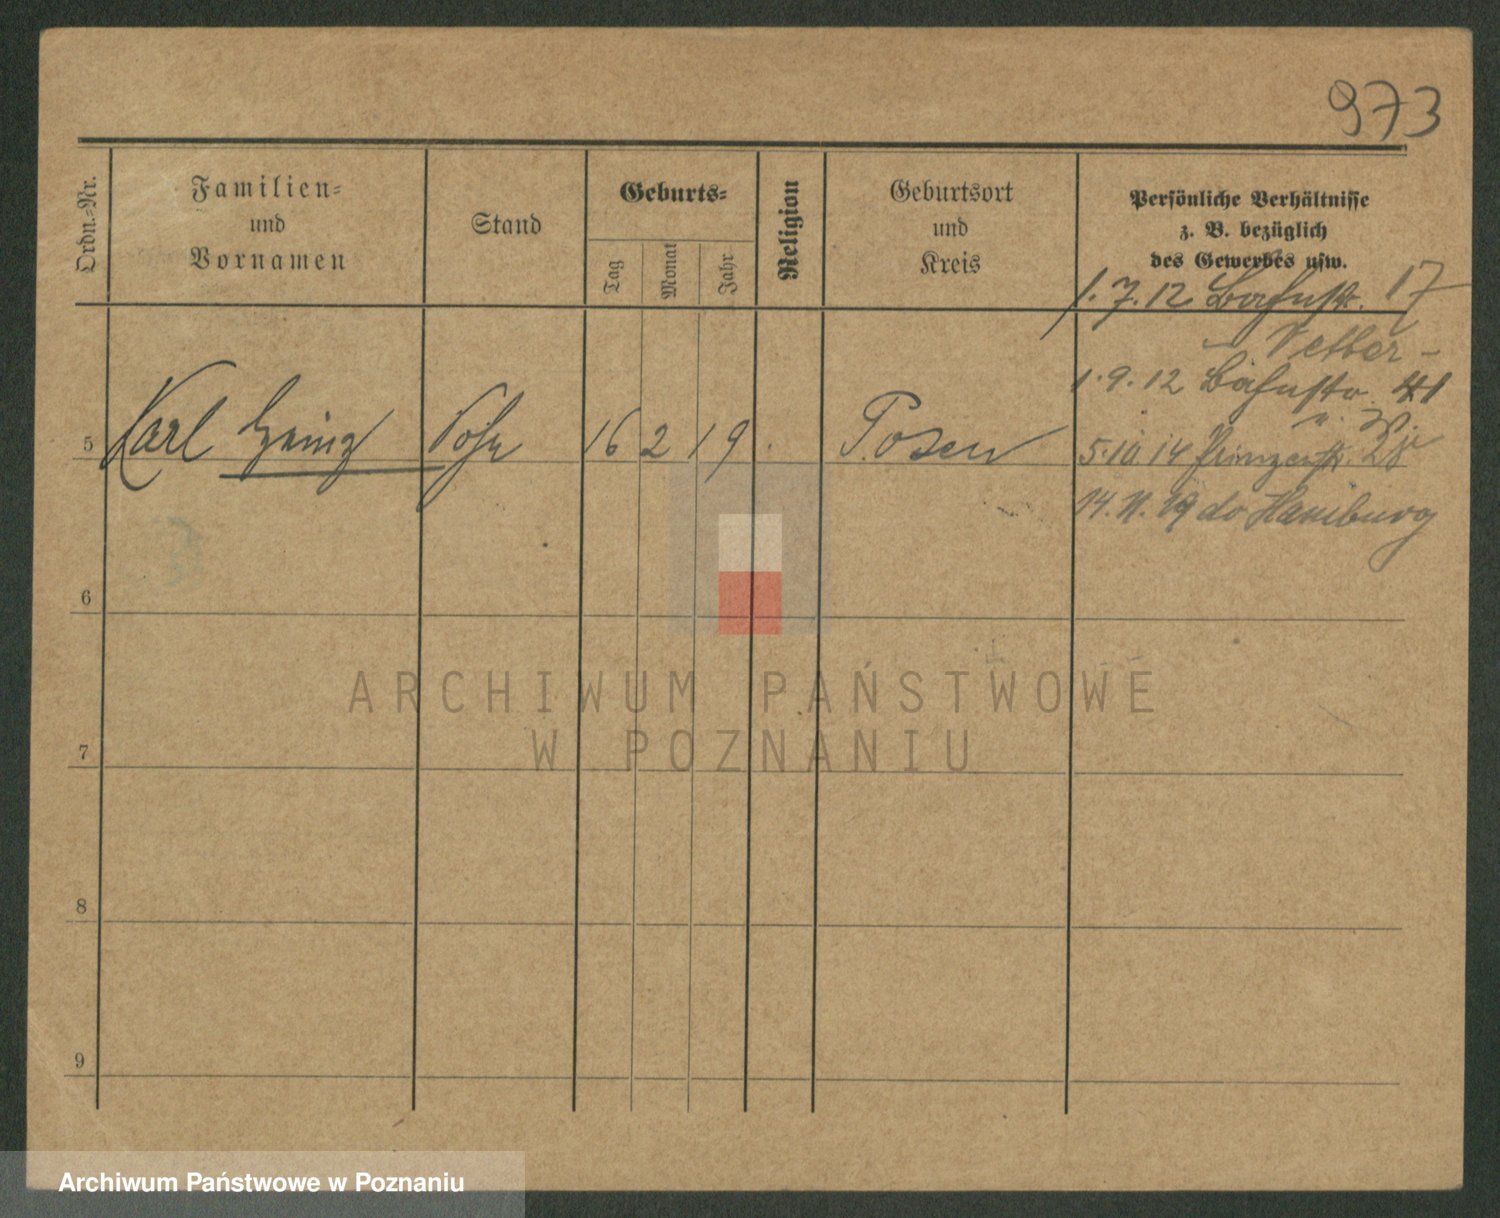 973
Ordn.-Nr.
Familien-
und
Vornamen
Stand
Geburts-
Tag
Monat
Jahr
Religion
Geburtsort
und
Kreis
Persönliche Verhältnisse
z. B. bezüglich
des Gewerbes usw.
1.7.12 Bahnstr. 17
1.9.12 Bahnstr.
5 Karl Heinz Sohn 16 2 19 Posen
5.10.14 Prinzenstr.
14.11.19 do Hamburg
6
7
8
9
ARCHIWUM PAŃSTWOWE
W POZNANIU
Archiwum Państwowe w Poznaniu